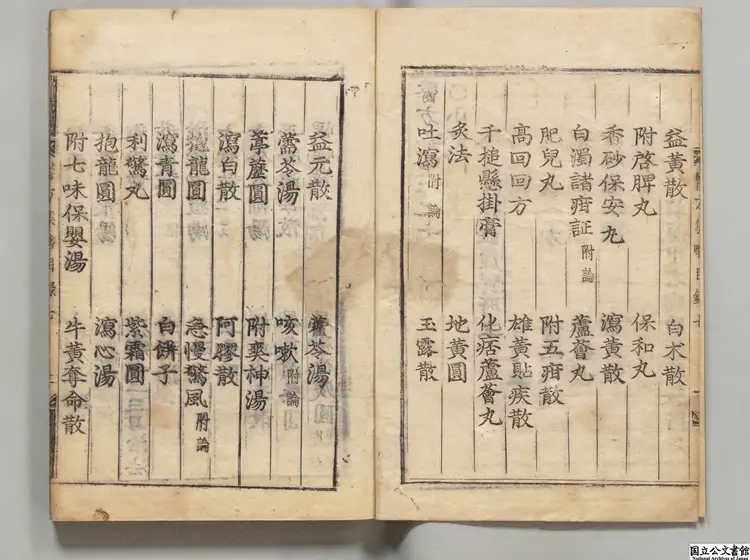 益黃散 白朮散
附啓脾丸 保和丸
香砂保安丸 瀉黃散
白濁諸疳証附論 蘆薈丸
肥兒丸 附五疳散
高回回方 雄黃貼疾散
千搥懸掛膏 化痞蘆薈丸
灸法 地黃圓
吐瀉附論 玉露散
益元散
薷苓湯 咳嗽附論
葶藶圓 附爽神湯
瀉白散 阿膠散
抱龍圓 急慢驚風附論
瀉青圓 白餅子
利驚丸 紫霜圓
抱龍圓 瀉心湯
附七味保嬰湯 牛黃奪命散
国立公文書館
National Archives of Japan